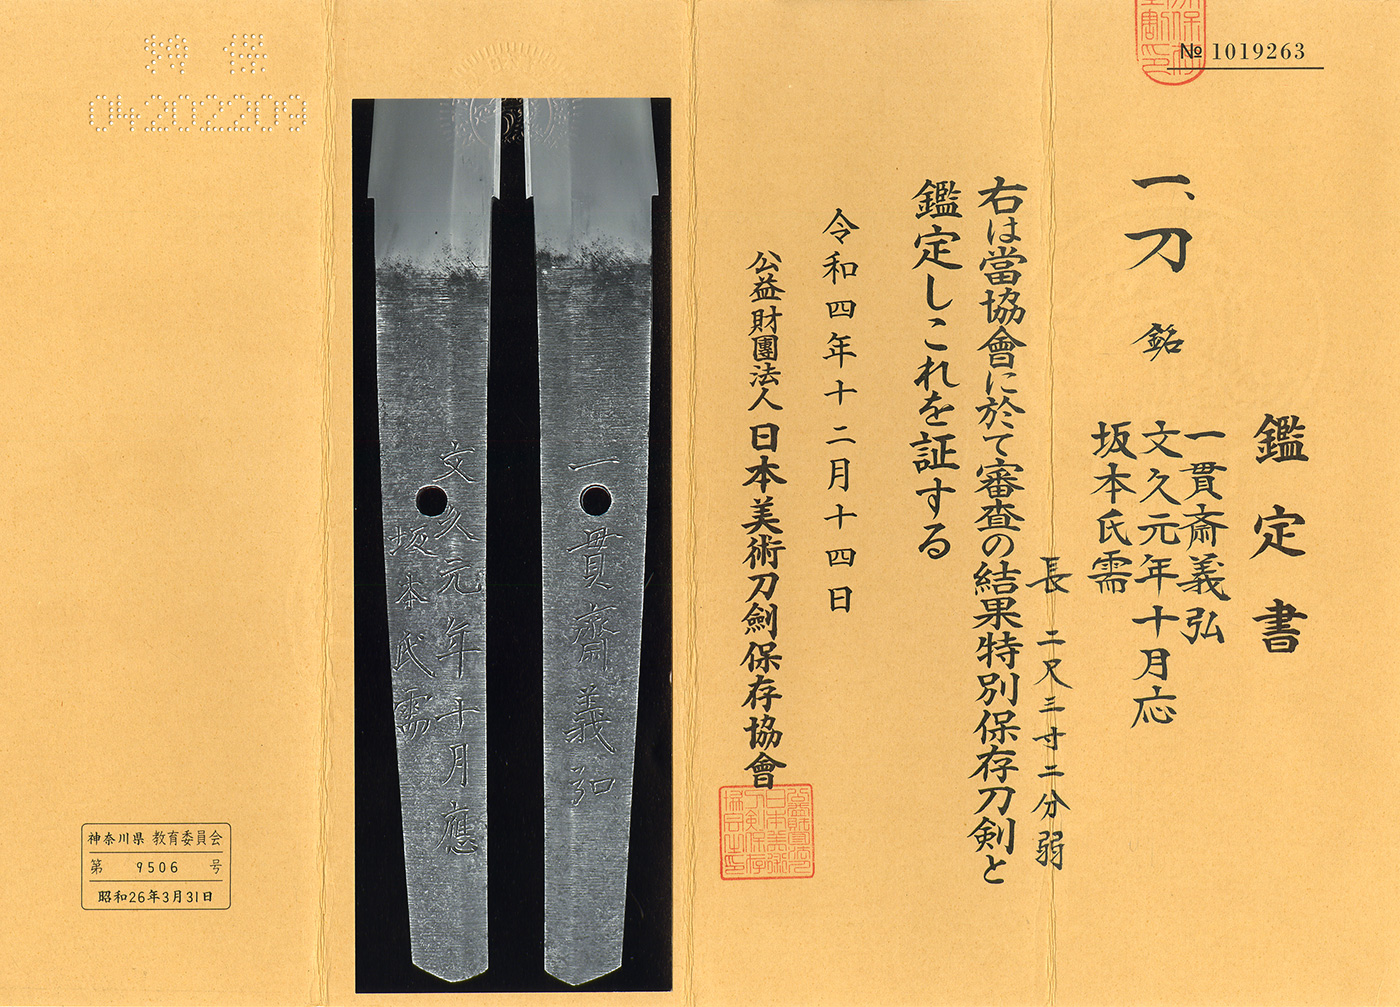 № 1019263
鑑定書
一、刀 銘
一貫斎義弘
文久元年十月応
坂本氏需
長 二尺三寸二分弱
右は當協會に於て審査の結果特別保存刀剣と
鑑定しこれを証する
令和四年十二月十四日
公益財團法人日本美術刀劍保存協會
一貫齋義弘
文久元年十月應
坂本氏需
特保
04202209
神奈川県 教育委員会
第 9506 号
昭和26年3月31日